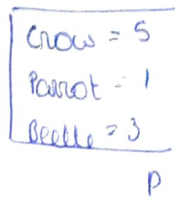 Crow = 5
Parrot = 1
Beelle = 3
P